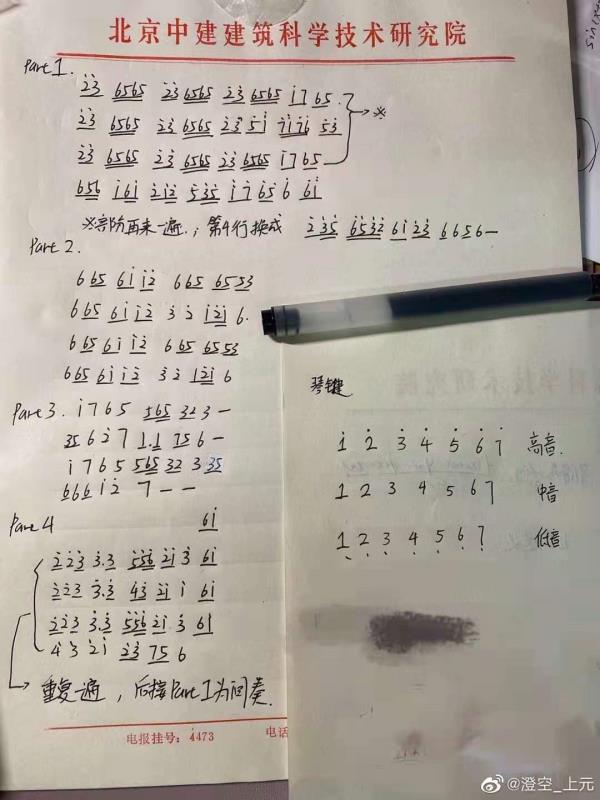 北京中建建筑科学技术研究院
Part 1.
2̇3̇ 6565 2̇3̇ 6565 2̇3̇ 6565 i̇765.
2̇3̇ 6565 2̇3̇ 6565 2̇3̇ 5i̇ 7i̇76 53
→※
2̇3̇ 6565 2̇3̇ 6565 2̇3̇ 6565 i̇765
656 i̇6i̇ 2̇i̇2̇ 535 i̇765 6 6i̇
再来一遍,第4行换成 2̇35 6532 6i̇2̇3̇ 6656—
Part 2.
665 6i̇i̇2̇ 665 6553
665 6i̇i̇2̇ 3̇2̇ i̇2̇i̇ 6.
665 6i̇i̇2̇ 665 6553
665 6i̇i̇2̇ 3̇2̇ i̇2̇i̇ 6
Part 3. i̇765 565 323—
35 627 1.1 756—
i̇765 565 32 3 35
666i̇2̇ 7——
Part 4 6i̇
2̇2̇3̇ 3̇.3̇ 5̇5̇6̇ 2̇i̇ 3̇ 6i̇
2̇2̇3̇ 3̇.3̇ 4̇3̇ 2̇i̇ i̇ 6i̇
2̇2̇3̇ 3̇.3̇ 5̇5̇6̇ 2̇i̇ 3̇ 6i̇
4̇3̇ 2̇i̇ 2̇3̇ 75 6
→重复一遍,后接Part 1为间奏.
电报挂号:4473
电话
琴键
1̇ 2̇ 3̇ 4̇ 5̇ 6̇ 7̇ 高音.
1 2 3 4 5 6 7 中音
1̣ 2̣ 3̣ 4̣ 5̣ 6̣ 7̣ 低音
@澄空_上元